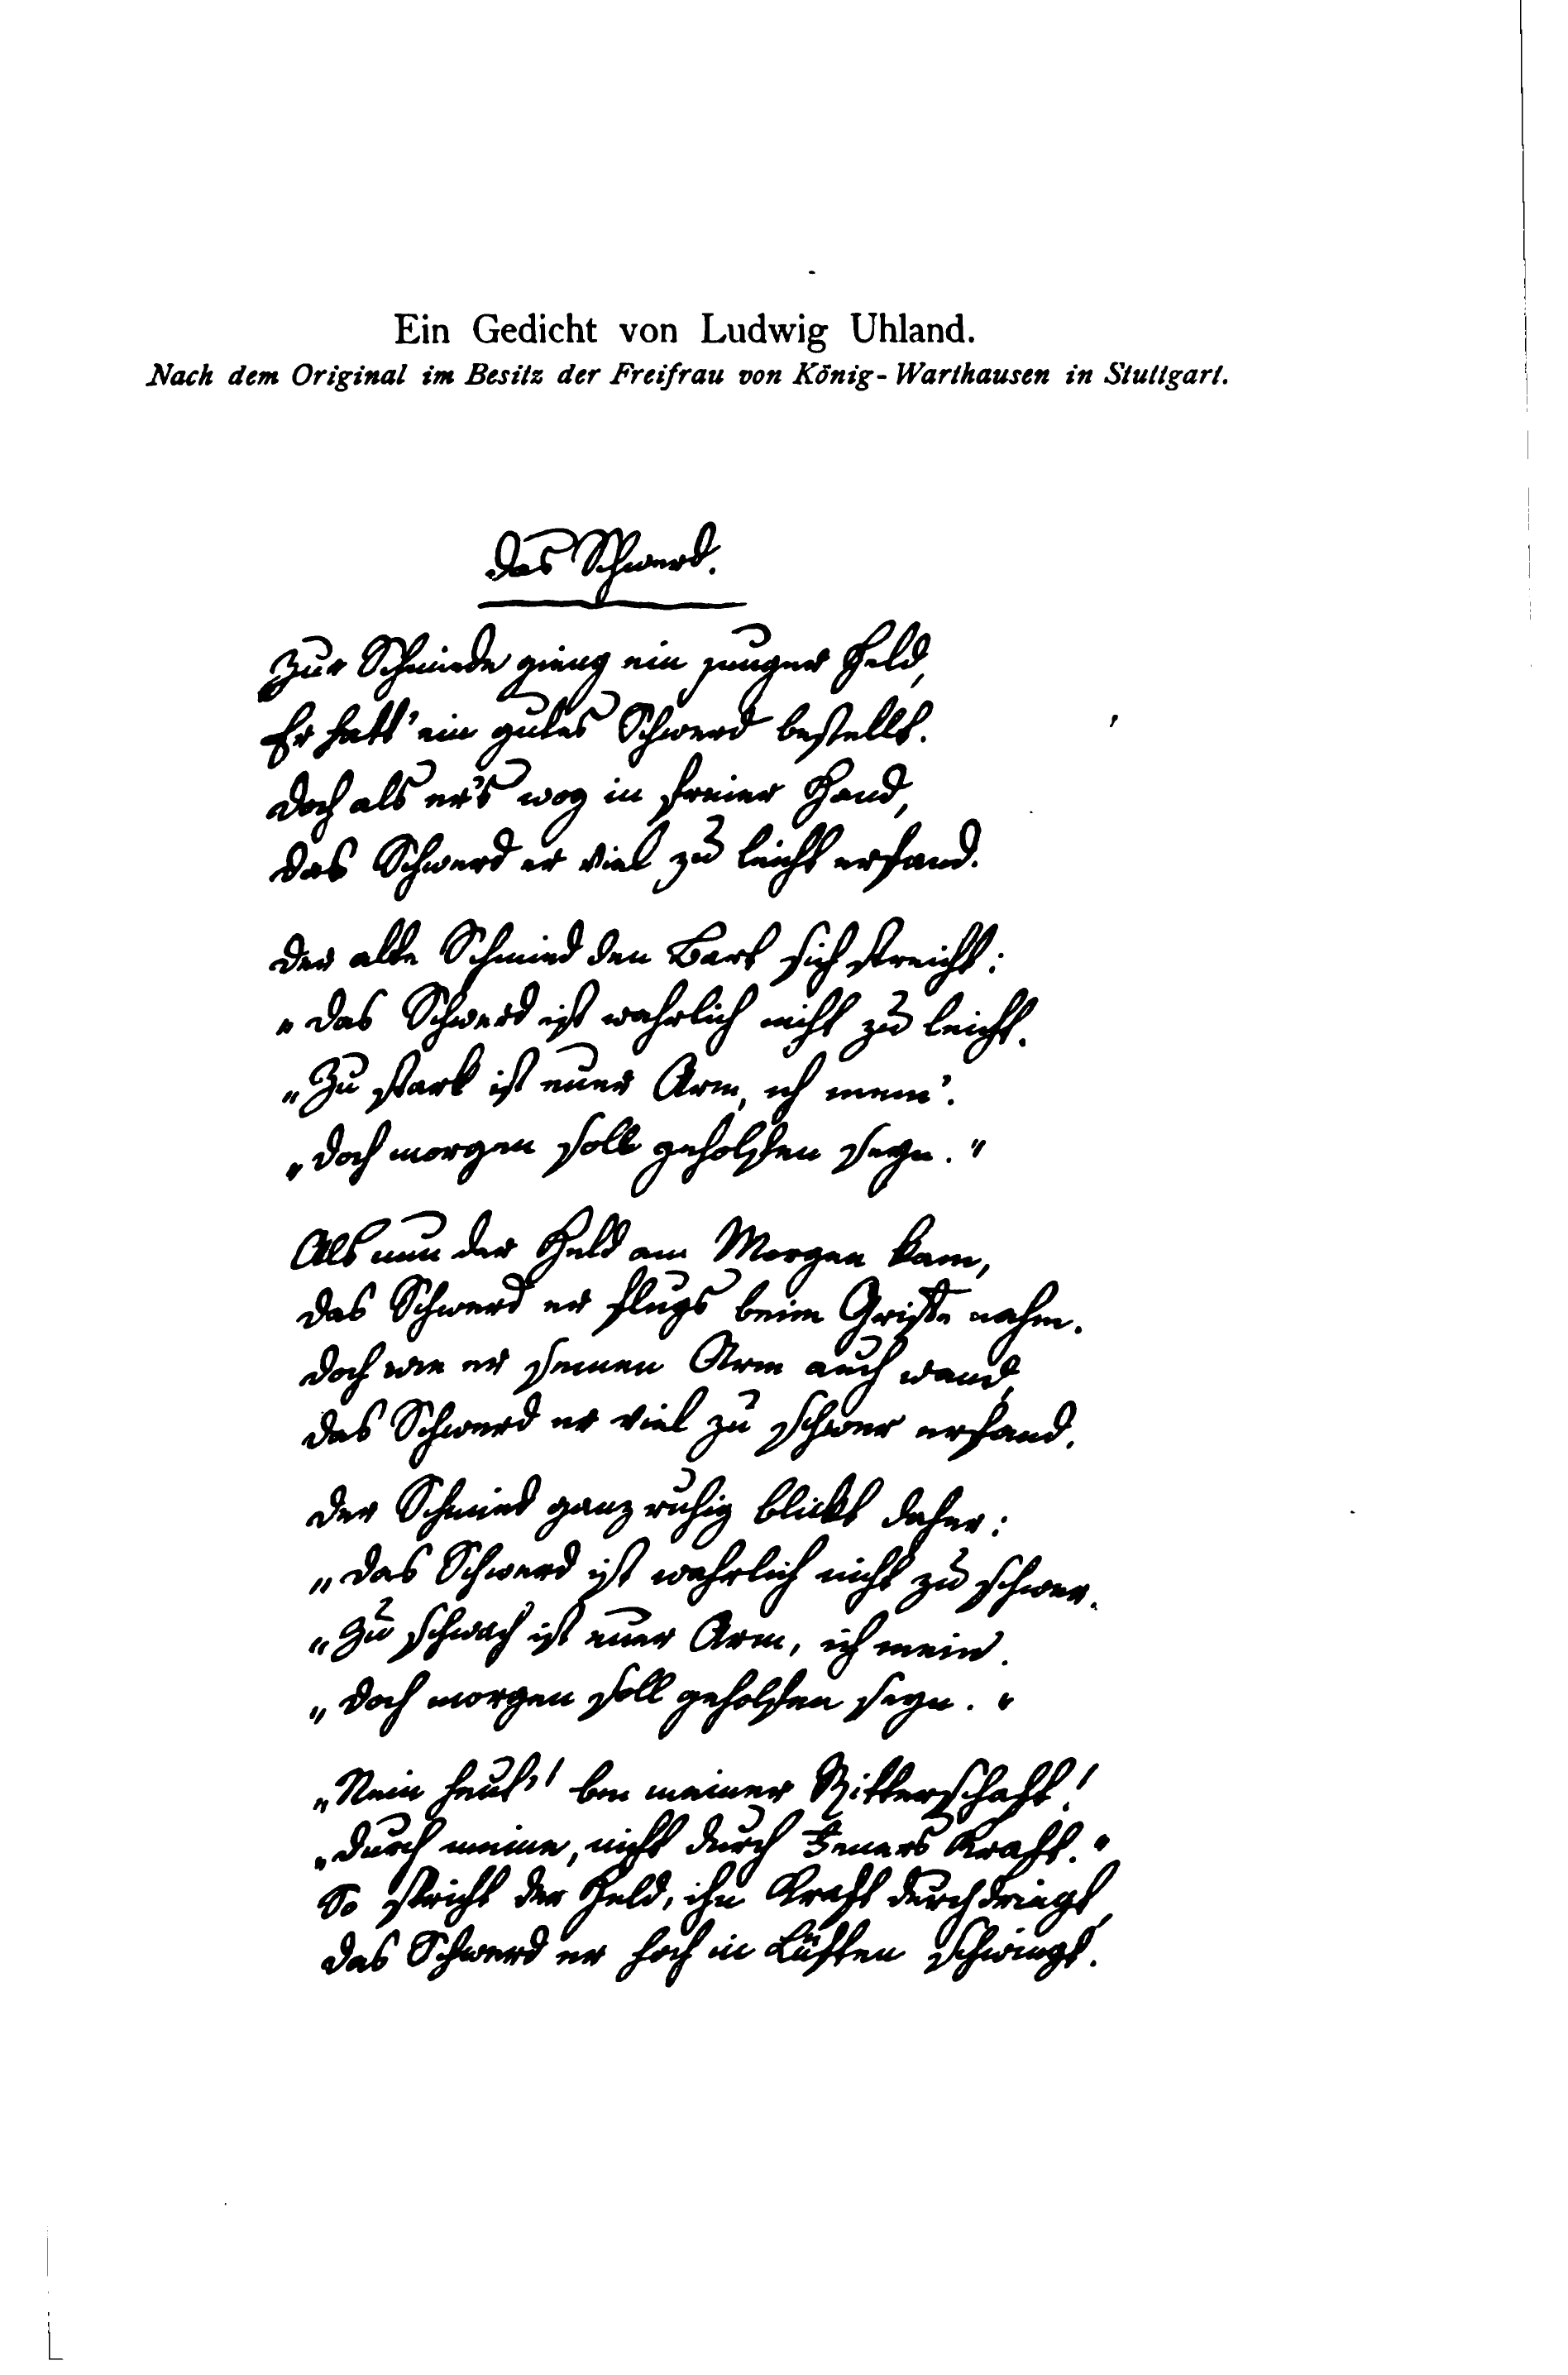 Ein Gedicht von Ludwig Uhland.
Nach dem Original im Besitz der Freifrau von König-Warthausen in Stuttgart.
Das Schwerd.
Zur Schmiede gieng ein junger Held,
Er hatt' ein gutes Schwerd bestellt.
Doch als er's wog in freier Hand,
Das Schwerd er viel zu leicht erfand.
Der alte Schmied den Bart sich streicht:
„Das Schwerd ist wahrlich nicht zu leicht.
„Zu stark ist euer Arm, ich mein'.
„Doch morgen soll geholfen seyn."
Als nun der Held am Morgen kam,
Das Schwerd er flugs beim Griffe nahm.
Doch wie er seinen Arm auch wand,
Das Schwerd er viel zu schwer erfand.
Der Schmied ganz ruhig blickt daher:
„Das Schwerd ist wahrlich nicht zu schwer.
„Zu schwach ist euer Arm, ich mein'.
„Doch morgen soll geholfen seyn."
„Nein heut'! bei meiner Ritterschaft!
„Durch meine, nicht durch Feuers Kraft."
So spricht der Held, ihn Kraft durchdringt,
Das Schwerd er hoch in Lüften schwingt.